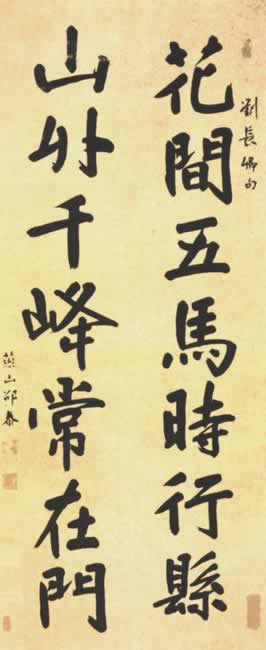 劉長卿句
花間五馬時行縣
山外千峰常在門
燕山邵泰